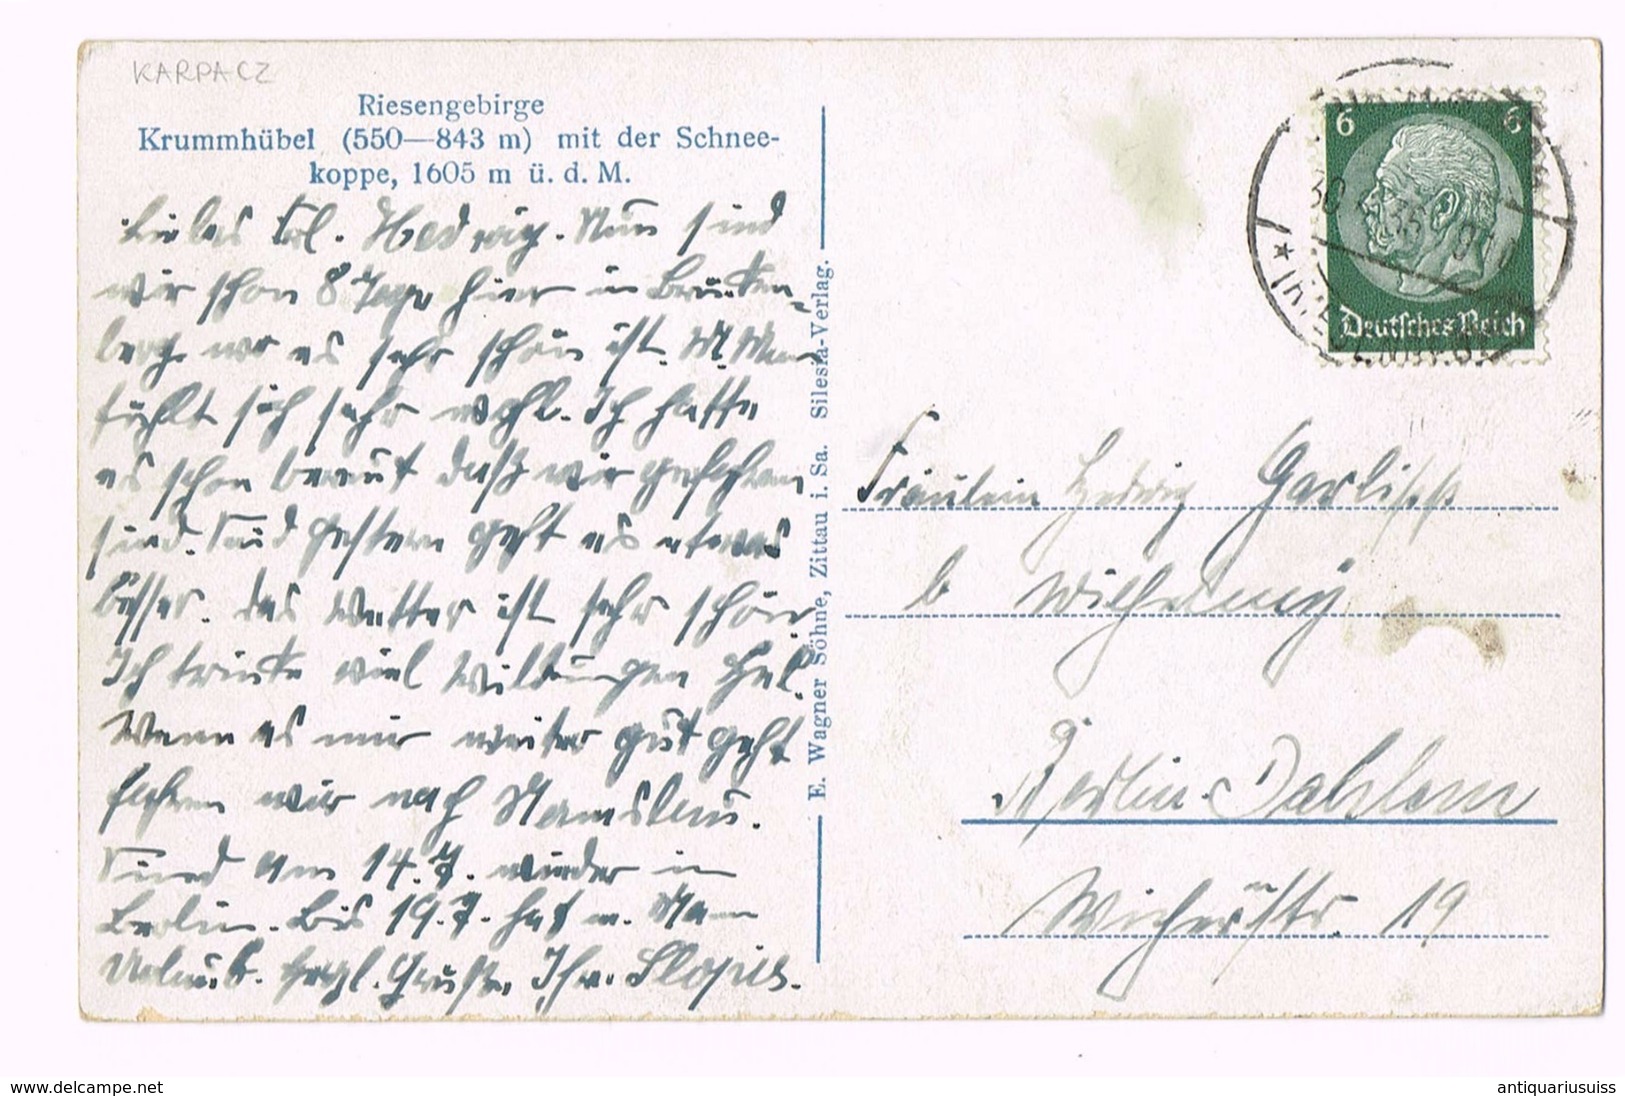 KARPACZ
Riesengebirge
Krummhübel (550—843 m) mit der Schnee-
koppe, 1605 m ü. d. M.
Liebes Frl. Hedwig. Nun sind
wir schon 8 Tage hier in Brücken-
berg wo es sehr schön ist. M. Mann
fühlt sich sehr wohl. Ich hatte
es schon bereut daß wir gefahren
sind. Seid gestern geht es etwas
besser. Das Wetter ist sehr schön
Ich trinke viel Wildungen Hel.
Wenn es mir weiter gut geht
fahren wir nach Namslau.
Sind am 14.7. wieder in
Berlin. Bis 19.7. hat m. Mann
Urlaub. Herzl. Grüße Ihre
E. Wagner Söhne, Zittau i. Sa. Silesia-Verlag.
6 6
Deutsches Reich
30 35
Fräulein Hedwig
b
Berlin-Dahlem
19
www.delcampe.net
antiquariusuiss